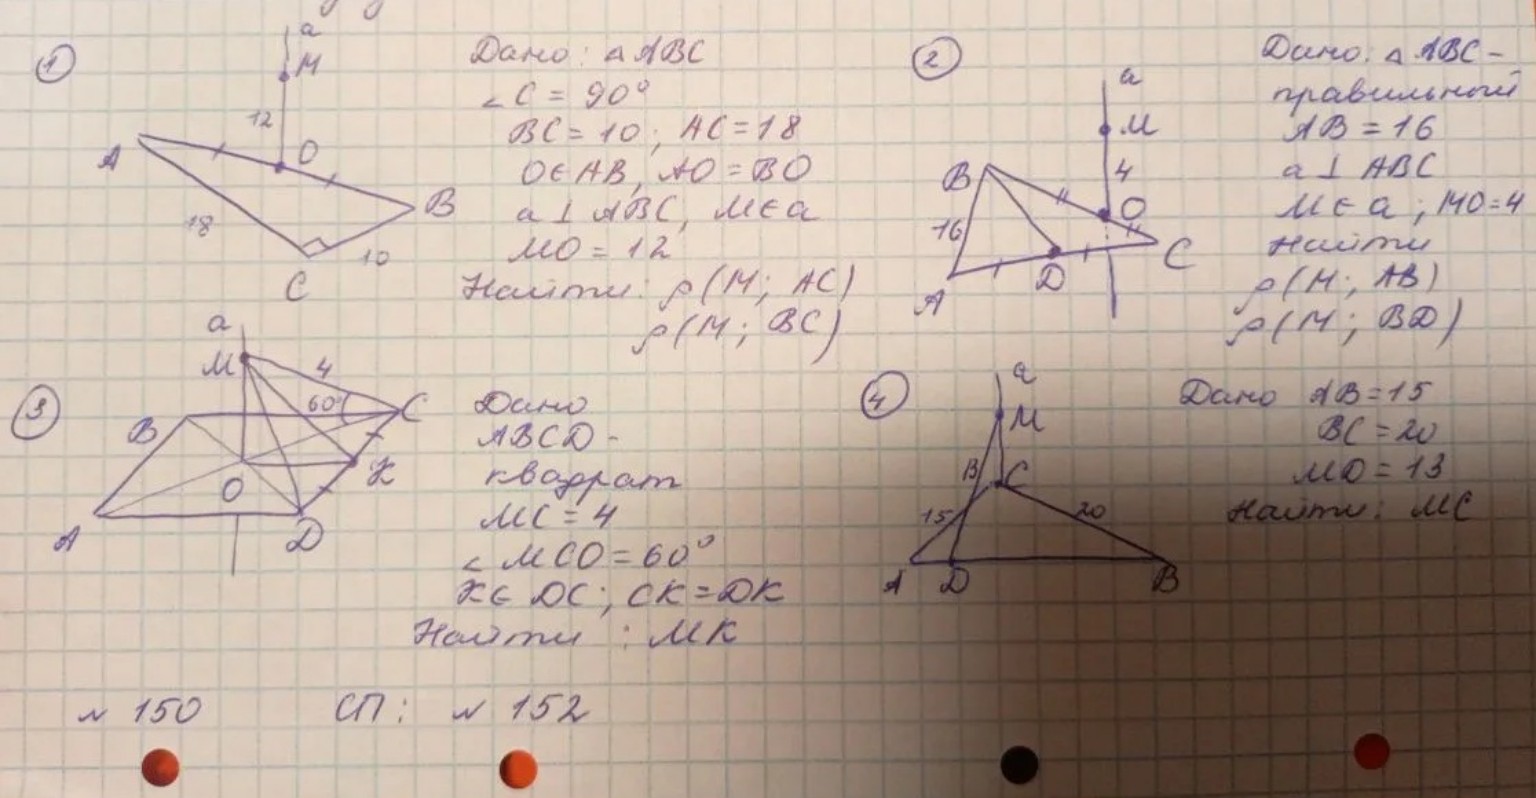 1
a
M
12
O
A
B
18
10
C
Дано: △ABC
∠C = 90°
BC = 10; AC = 18
O∈AB, AO = BO
a⊥ABC, M∈a
MO = 12
Найти: ρ(M; AC)
ρ(M; BC)
2
a
M
4
B
O
16
C
A
D
Дано: △ABC-
правильный
AB = 16
a⊥ABC
M∈a; MO=4
Найти
ρ(M; AB)
ρ(M; BD)
3
a
M
4
60°
C
B
K
O
A
D
Дано
ABCD -
квадрат
MC = 4
∠MCO = 60°
K∈DC; CK = DK
Найти: MK
4
a
M
B
C
15
20
A
D
B
Дано AB = 15
BC = 20
MD = 13
Найти: MC
№ 150 СП: № 152